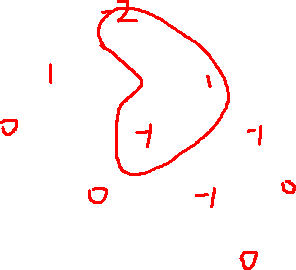 -2
1 1
0 -1 -1
0 -1 0
0